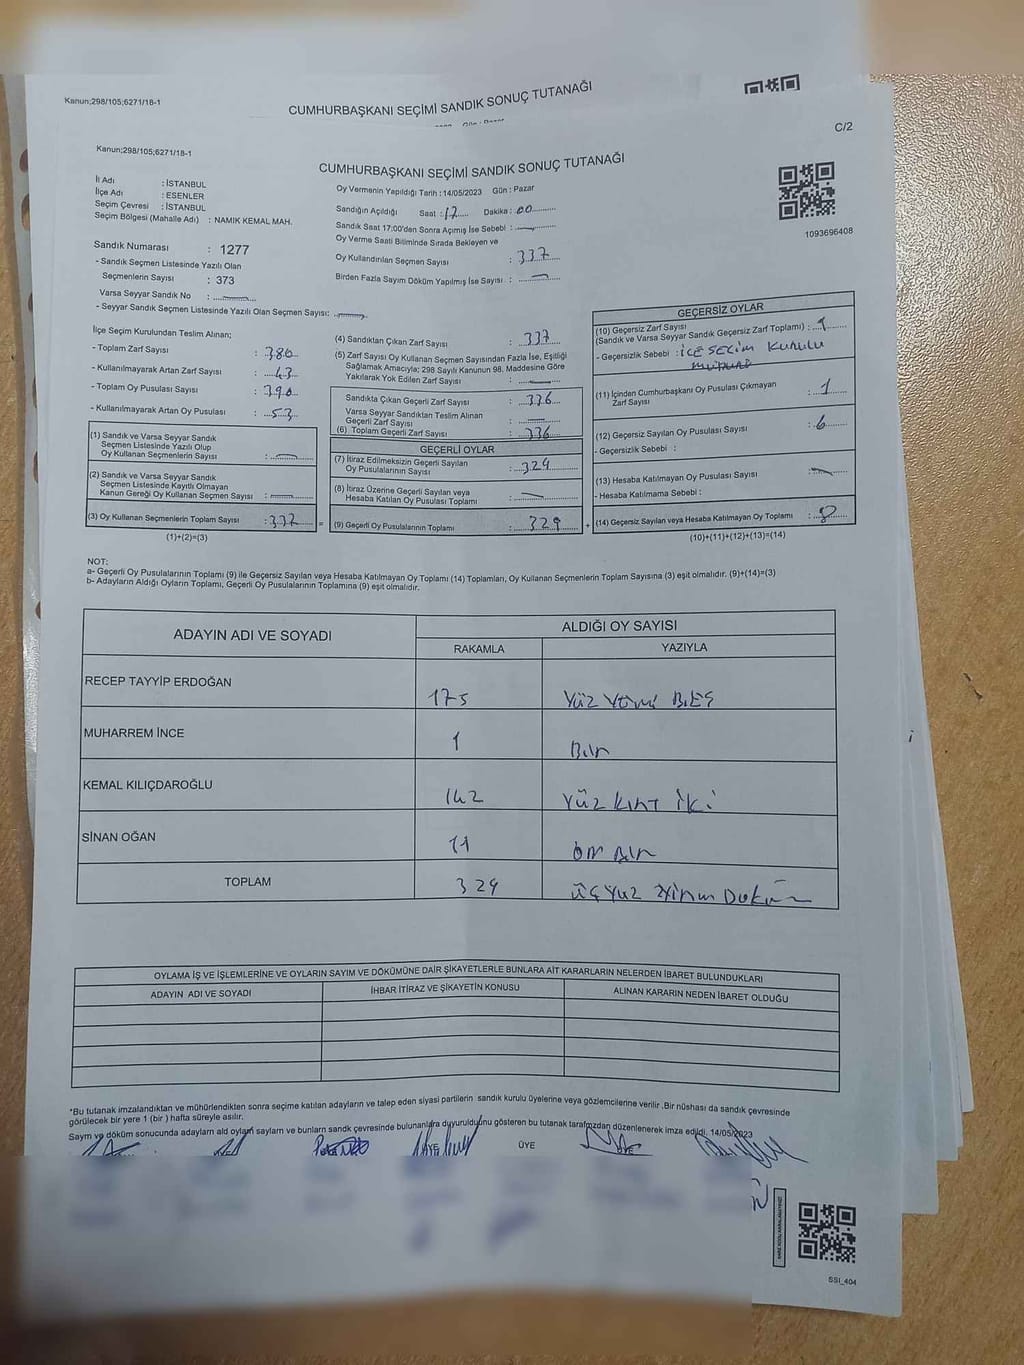 Kanun;298/105;6271/18-1
CUMHURBAŞKANI SEÇİMİ SANDIK SONUÇ TUTANAĞI
C/2
Kanun;298/105;6271/18-1
CUMHURBAŞKANI SEÇİMİ SANDIK SONUÇ TUTANAĞI
1093696408
İl Adı : İSTANBUL
İlçe Adı : ESENLER
Seçim Çevresi : İSTANBUL
Seçim Bölgesi (Mahalle Adı) : NAMIK KEMAL MAH.
Sandık Numarası : 1277
- Sandık Seçmen Listesinde Yazılı Olan
Seçmenlerin Sayısı : 373
Varsa Seyyar Sandık No :
- Seyyar Sandık Seçmen Listesinde Yazılı Olan Seçmen Sayısı:
Oy Vermenin Yapıldığı Tarih : 14/05/2023 Gün : Pazar
Sandığın Açıldığı Saat : 17 Dakika : 00
Sandık Saat 17:00'den Sonra Açılmış İse Sebebi :
Oy Verme Saati Bitiminde Sırada Bekleyen ve
Oy Kullandırılan Seçmen Sayısı : 337
Birden Fazla Sayım Döküm Yapılmış İse Sayısı :
İlçe Seçim Kurulundan Teslim Alınan;
- Toplam Zarf Sayısı : 380
- Kullanılmayarak Artan Zarf Sayısı : 43
- Toplam Oy Pusulası Sayısı : 390
- Kullanılmayarak Artan Oy Pusulası : 53
(1) Sandık ve Varsa Seyyar Sandık
Seçmen Listesinde Yazılı Olup
Oy Kullanan Seçmenlerin Sayısı :
(2) Sandık ve Varsa Seyyar Sandık
Seçmen Listesinde Kayıtlı Olmayan
Kanun Gereği Oy Kullanan Seçmen Sayısı :
(3) Oy Kullanan Seçmenlerin Toplam Sayısı : 337
(1)+(2)=(3)
(4) Sandıktan Çıkan Zarf Sayısı : 337
(5) Zarf Sayısı Oy Kullanan Seçmen Sayısından Fazla İse, Eşitliği
Sağlamak Amacıyla; 298 Sayılı Kanunun 98. Maddesine Göre
Yakılarak Yok Edilen Zarf Sayısı :
Sandıkta Çıkan Geçerli Zarf Sayısı : 336
Varsa Seyyar Sandıktan Teslim Alınan
Geçerli Zarf Sayısı :
(6) Toplam Geçerli Zarf Sayısı : 336
GEÇERLİ OYLAR
(7) İtiraz Edilmeksizin Geçerli Sayılan
Oy Pusulalarının Sayısı : 329
(8) İtiraz Üzerine Geçerli Sayılan veya
Hesaba Katılan Oy Pusulası Toplamı :
= (9) Geçerli Oy Pusulalarının Toplamı : 329
GEÇERSİZ OYLAR
(10) Geçersiz Zarf Sayısı
(Sandık ve Varsa Seyyar Sandık Geçersiz Zarf Toplamı) : 1
- Geçersizlik Sebebi : İLÇE SEÇİM KURULU
(11) İçinden Cumhurbaşkanı Oy Pusulası Çıkmayan
Zarf Sayısı : 1
(12) Geçersiz Sayılan Oy Pusulası Sayısı : 6
- Geçersizlik Sebebi :
(13) Hesaba Katılmayan Oy Pusulası Sayısı :
- Hesaba Katılmama Sebebi :
+ (14) Geçersiz Sayılan veya Hesaba Katılmayan Oy Toplamı : 8
(10)+(11)+(12)+(13)=(14)
NOT:
a- Geçerli Oy Pusulalarının Toplamı (9) ile Geçersiz Sayılan veya Hesaba Katılmayan Oy Toplamı (14) Toplamları, Oy Kullanan Seçmenlerin Toplam Sayısına (3) eşit olmalıdır. (9)+(14)=(3)
b- Adayların Aldığı Oyların Toplamı, Geçerli Oy Pusulalarının Toplamına (9) eşit olmalıdır.
ADAYIN ADI VE SOYADI ALDIĞI OY SAYISI
RAKAMLA YAZIYLA
RECEP TAYYİP ERDOĞAN 175 YÜZ YETMİŞ BEŞ
MUHARREM İNCE 1 BİR
KEMAL KILIÇDAROĞLU 142 YÜZ KIRK İKİ
SİNAN OĞAN 11 ON BİR
TOPLAM 329 ÜÇ YÜZ YİRMİ DOKUZ
OYLAMA İŞ VE İŞLEMLERİNE VE OYLARIN SAYIM VE DÖKÜMÜNE DAİR ŞİKAYETLERLE BUNLARA AİT KARARLARIN NELERDEN İBARET BULUNDUKLARI
ADAYIN ADI VE SOYADI İHBAR İTİRAZ VE ŞİKAYETİN KONUSU ALINAN KARARIN NEDEN İBARET OLDUĞU
*Bu tutanak imzalandıktan ve mühürlendikten sonra seçime katılan adayların ve talep eden siyasi partilerin sandık kurulu üyelerine veya gözlemcilerine verilir .Bir nüshası da sandık çevresinde
görülecek bir yere 1 (bir ) hafta süreyle asılır.
Sayım ve döküm sonucunda adayların aldığı oyların sayıları ve bunların sandık çevresinde bulunanlara duyurulduğunu gösteren bu tutanak tarafımızdan düzenlenerek imza edildi. 14/05/2023
ÜYE ÜYE
SSI_404